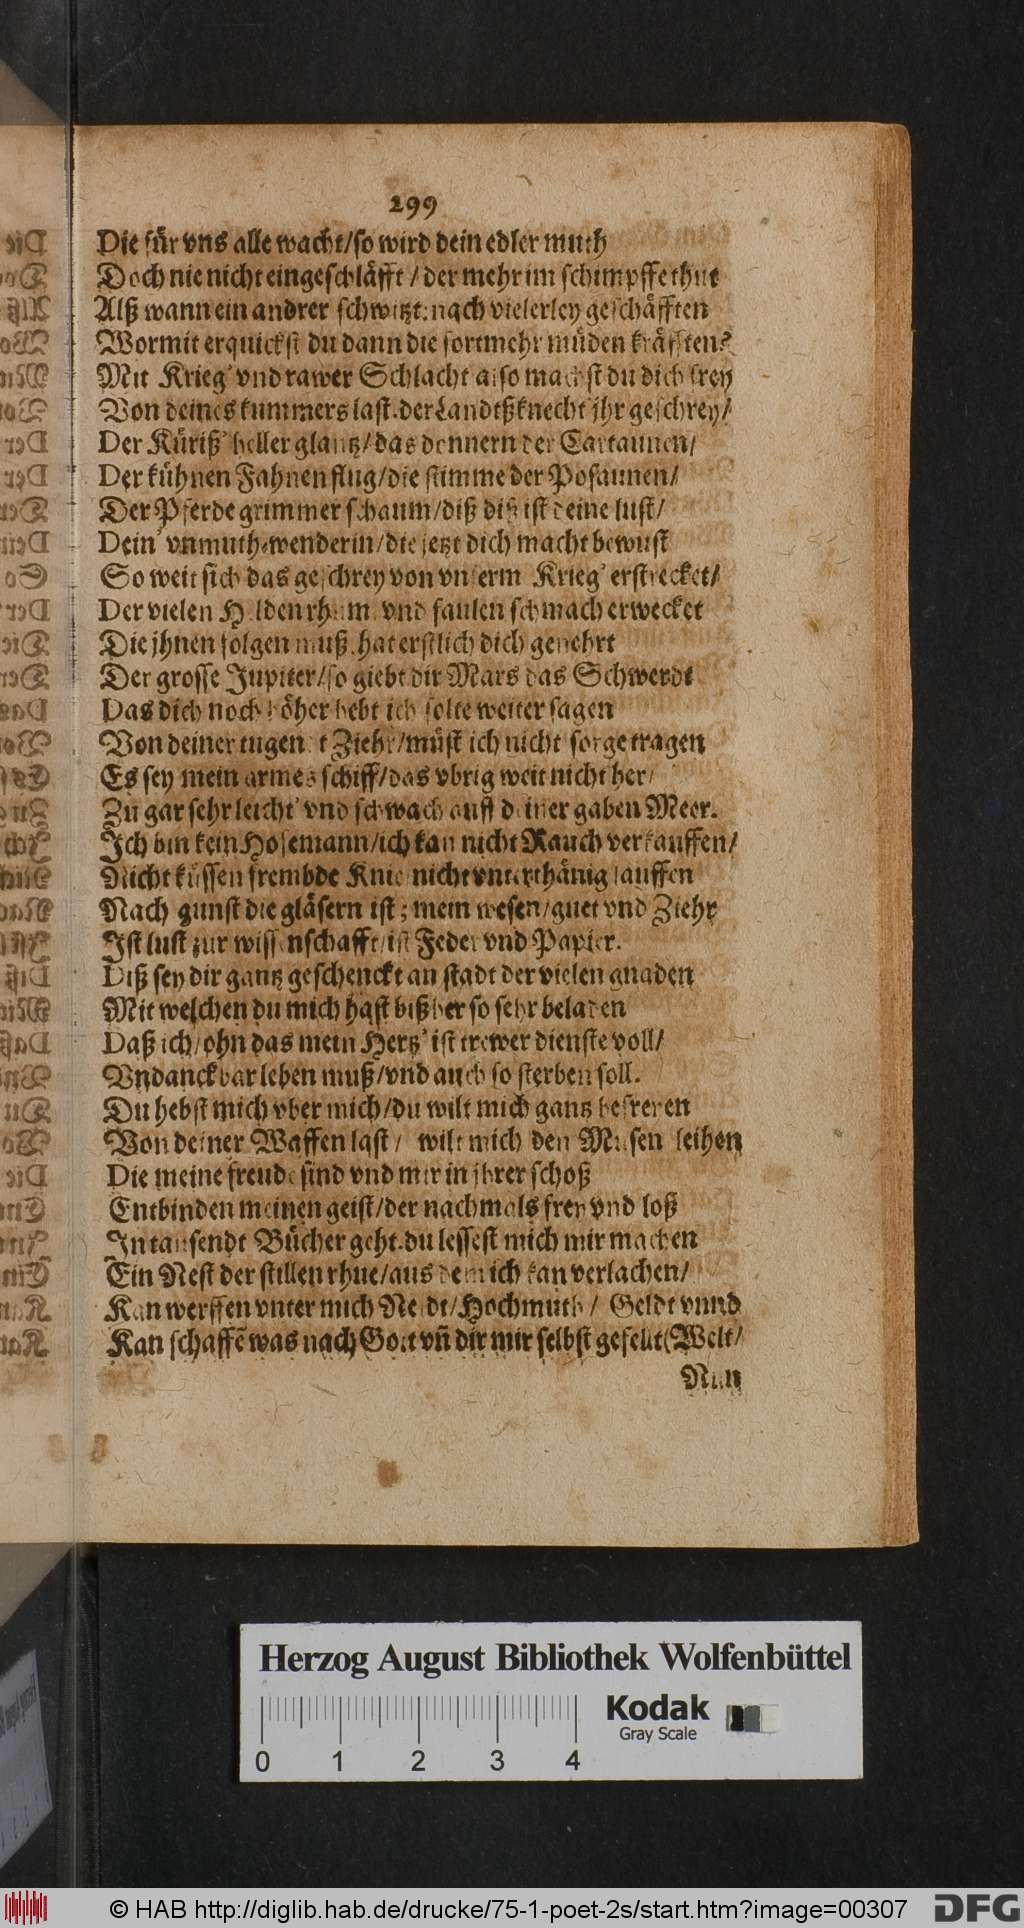 299
Die für vns alle wacht/so wird dein edler muth
Doch nie nicht eingeschläfft / der mehr im schimpffe thut
Alß wann ein andrer schwitzt: nach vielerley geschäfften
Wormit erquickst du dann die fortmehr müden kräfften?
Mit Krieg' vnd rawer Schlacht also machst du dich frey
Von deines kummers last. der Landtßknecht jhr geschrey/
Der Küriß' heller glantz/das donnern der Cartaunen/
Der kühnen Fahnen flug/die stimme der Posaunen/
Der Pferde grimmer schaum/diß diß ist deine lust/
Dein' vnmuth-wenderin/die jetzt dich macht bewust
So weit sich das geschrey von vnserm Krieg' erstrecket/
Der vielen Helden rhum vnd faulen schmach erwecket
Die jhnen folgen muß. hat erstlich dich genehrt
Der grosse Jupiter/so giebt dir Mars das Schwerdt
Das dich noch höher hebt ich solte weiter sagen
Von deiner tugendt Ziehr/müst ich nicht sorge tragen
Es sey mein armes schiff/das vbrig weit nicht her/
Zu gar sehr leicht' vnd schwach auff deiner gaben Meer.
Ich bin kein Hofemann/ich kan nicht Rauch verkauffen/
Nicht küssen frembde Knie nicht vnterthänig lauffen
Nach gunst die gläsern ist; mein wesen/guet vnd Ziehr
Ist lust zur wissenschafft/ist Feder vnd Papier.
Diß sey dir gantz geschenckt an stadt der vielen gnaden
Mit welchen du mich hast bißher so sehr beladen
Daß ich/ohn das mein Hertz' ist trewer dienste voll/
Vndanckbar leben muß/vnd auch so sterben soll.
Du hebst mich vber mich/du wilt mich gantz befreyen
Von deiner Waffen last/ wilt mich den Musen leihen
Die meine freude sind vnd mir in jhrer schoß
Entbinden meinen geist/der nachmals frey vnd loß
In tausendt Bücher geht. du lessest mich mir machen
Ein Nest der stillen rhue/aus dem ich kan verlachen/
Kan werffen vnter mich Neidt/Hochmuth/ Geldt vnnd
Kan schaffē was nach Gott vn̄ dir mir selbst gefellt (Welt/
Nun
Herzog August Bibliothek Wolfenbüttel
Kodak
Gray Scale
0 1 2 3 4
© HAB http://diglib.hab.de/drucke/75-1-poet-2s/start.htm?image=00307
DFG